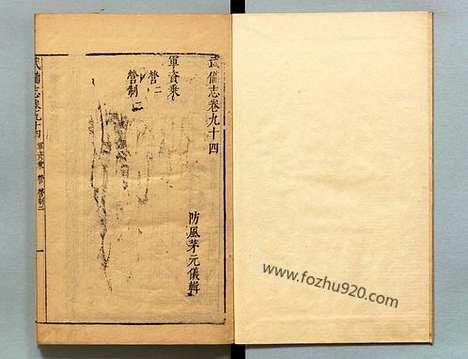 武備志卷九十四
防風茅元儀輯
軍資乘
營二
營制二
武備志卷九十四 軍資乘 營 營制二 一
www.fozhu920.com